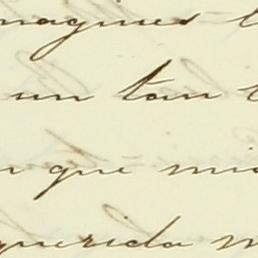 magines
un tan
que mi
querida